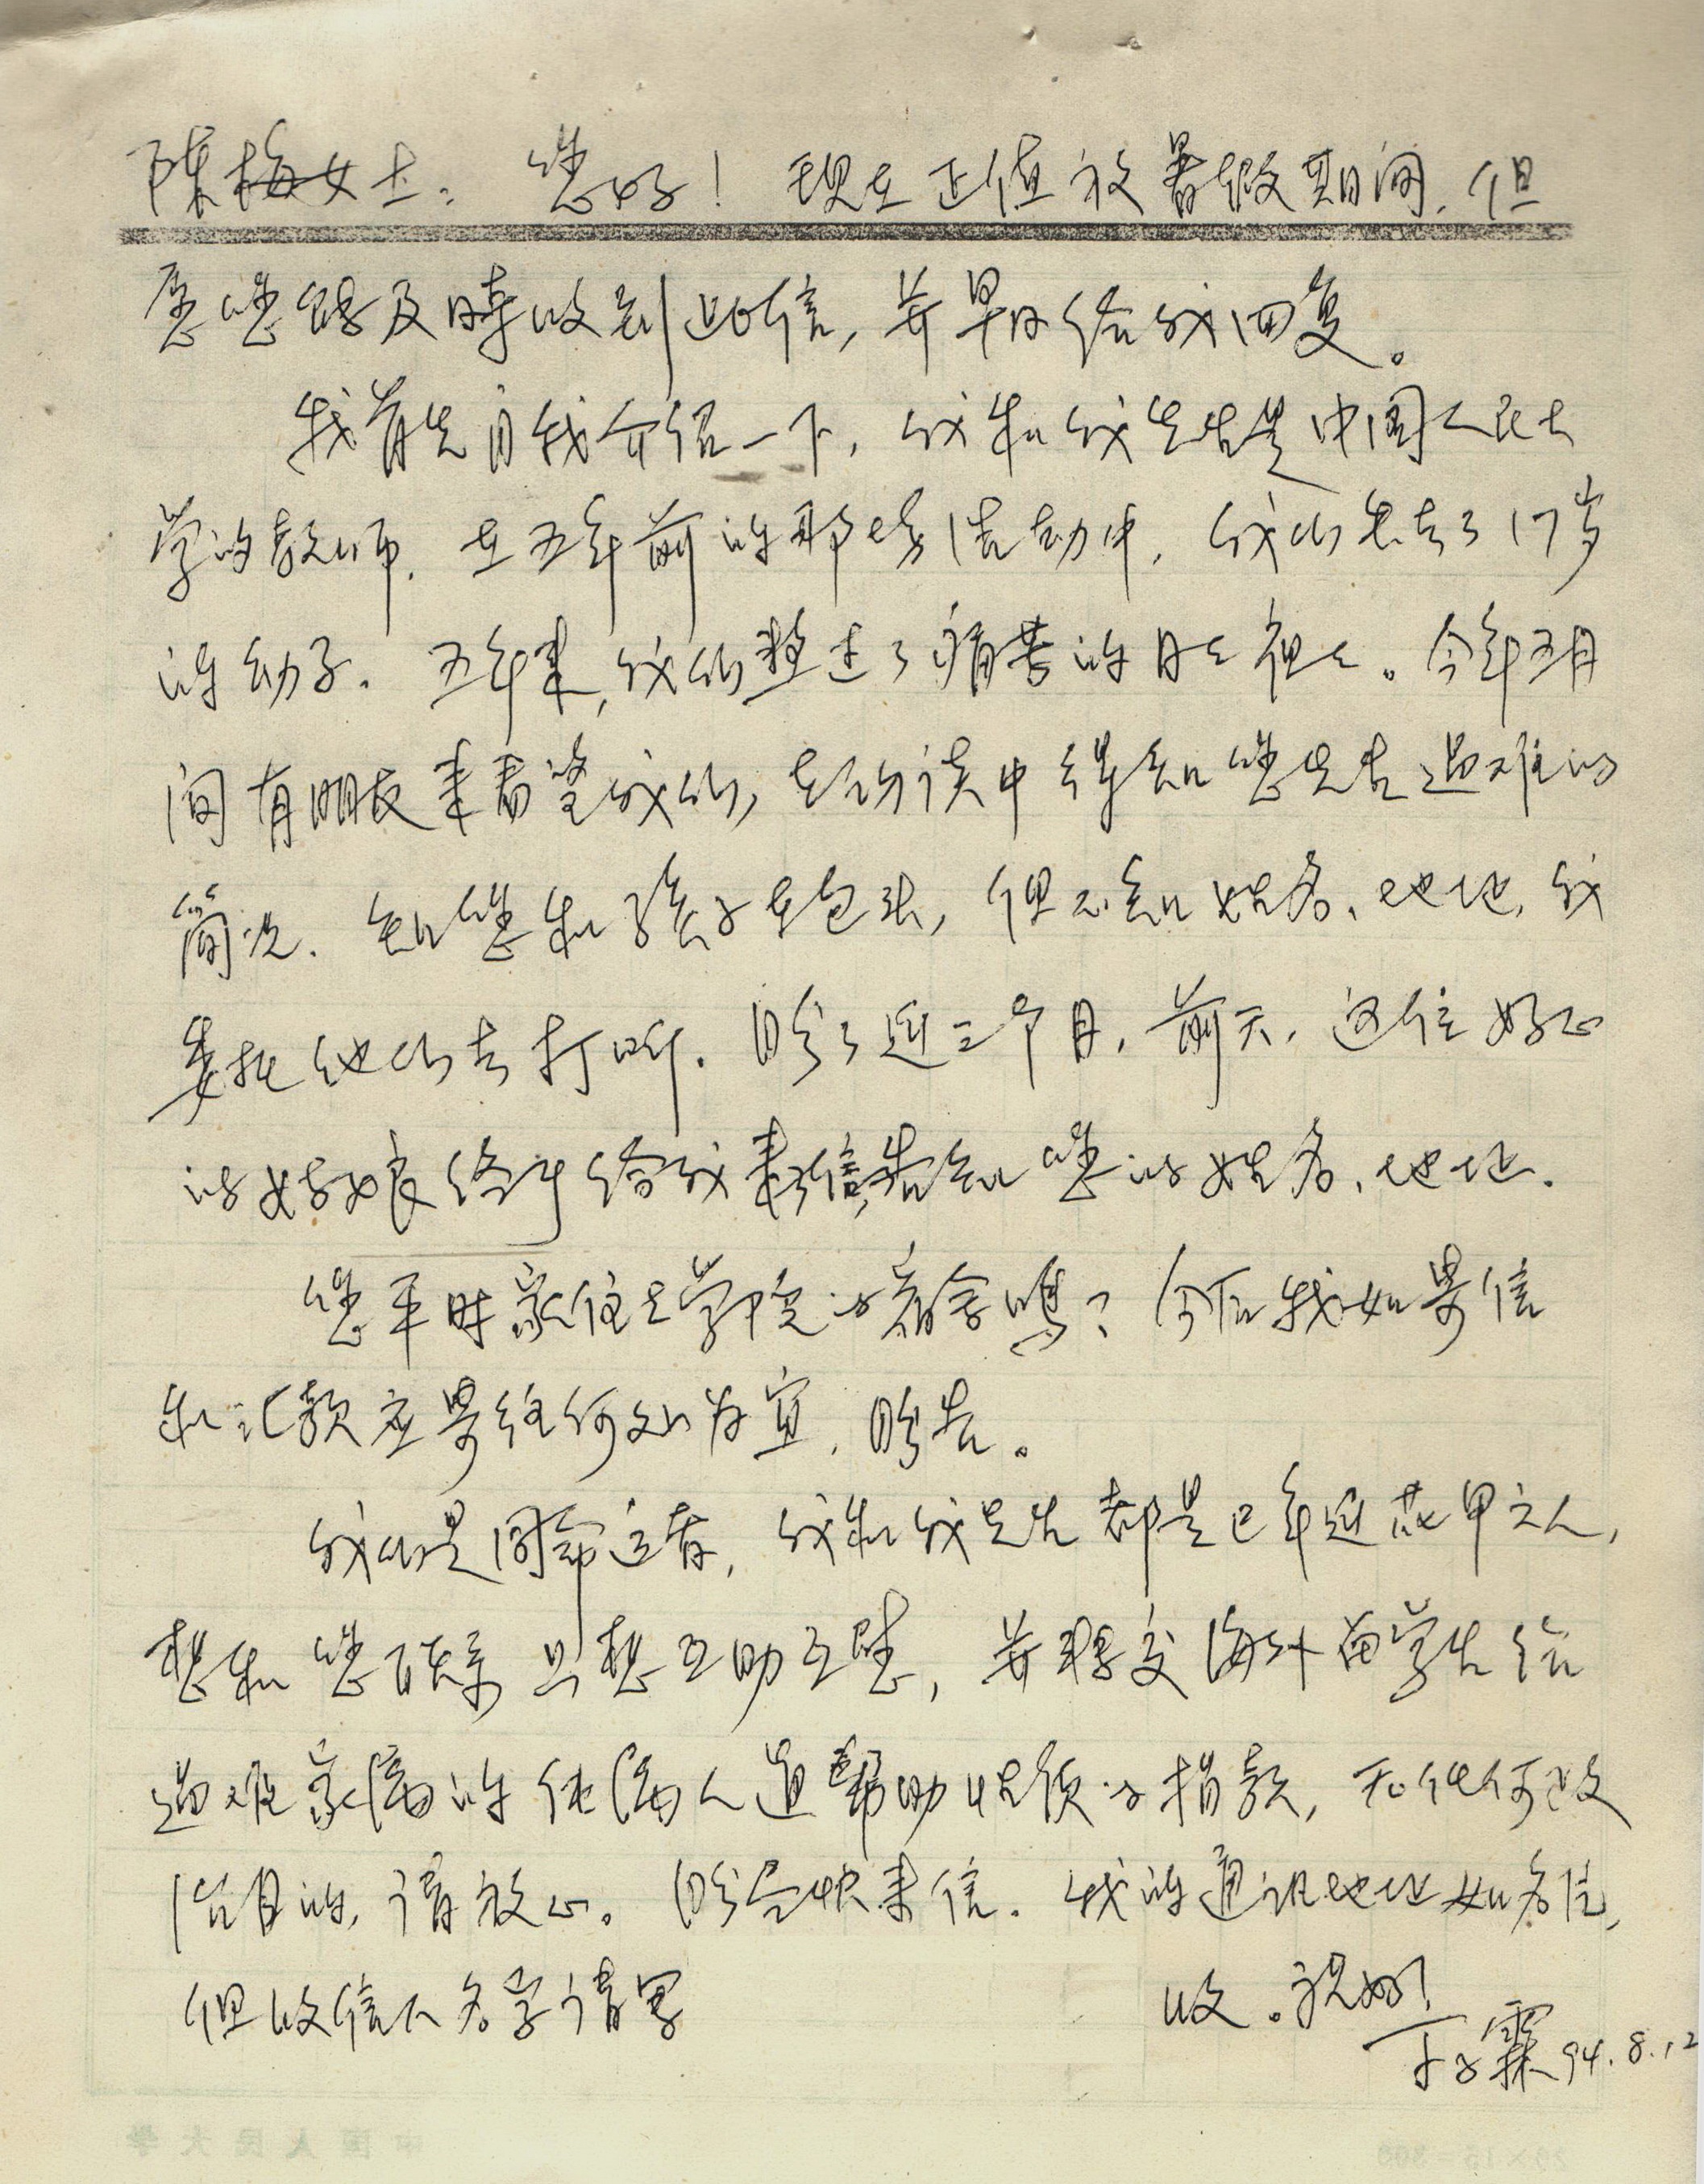 陈梅女士：您好！现在正值放暑假期间，但
愿您能及时收到此信，并早日给我回复。
我首先自我介绍一下，我和我先生是中国人民大
学的教师，在五年前的那场活动中，我们失去了17岁
的幼子。五年来，我们熬过了痛苦的日日夜夜。今年五月
间有朋友来看望我们，在谈中得知您先生遇难的
简况，知您和孩子在包头，但不知姓名、地址，我
委托他们去打听。盼了近三个月，前天，这位好心
的姑娘终于给我来信，告知您的姓名、地址。
您平时家住在学院的宿舍吗？今后我如寄信
和汇款应寄往何处为宜，盼告。
我们是同命运者，我和我先生都是已年近花甲之人，
想和您联系只想互助互慰，并转交海外留学生给
遇难家属的伤属人道帮助性质的捐款，无任何政
治目的，请放心。盼尽快来信。我的通讯地址如名片，
但收信人名字请写 收。祝好！
丁子霖 94.8.12
中国人民大学
20×15=300